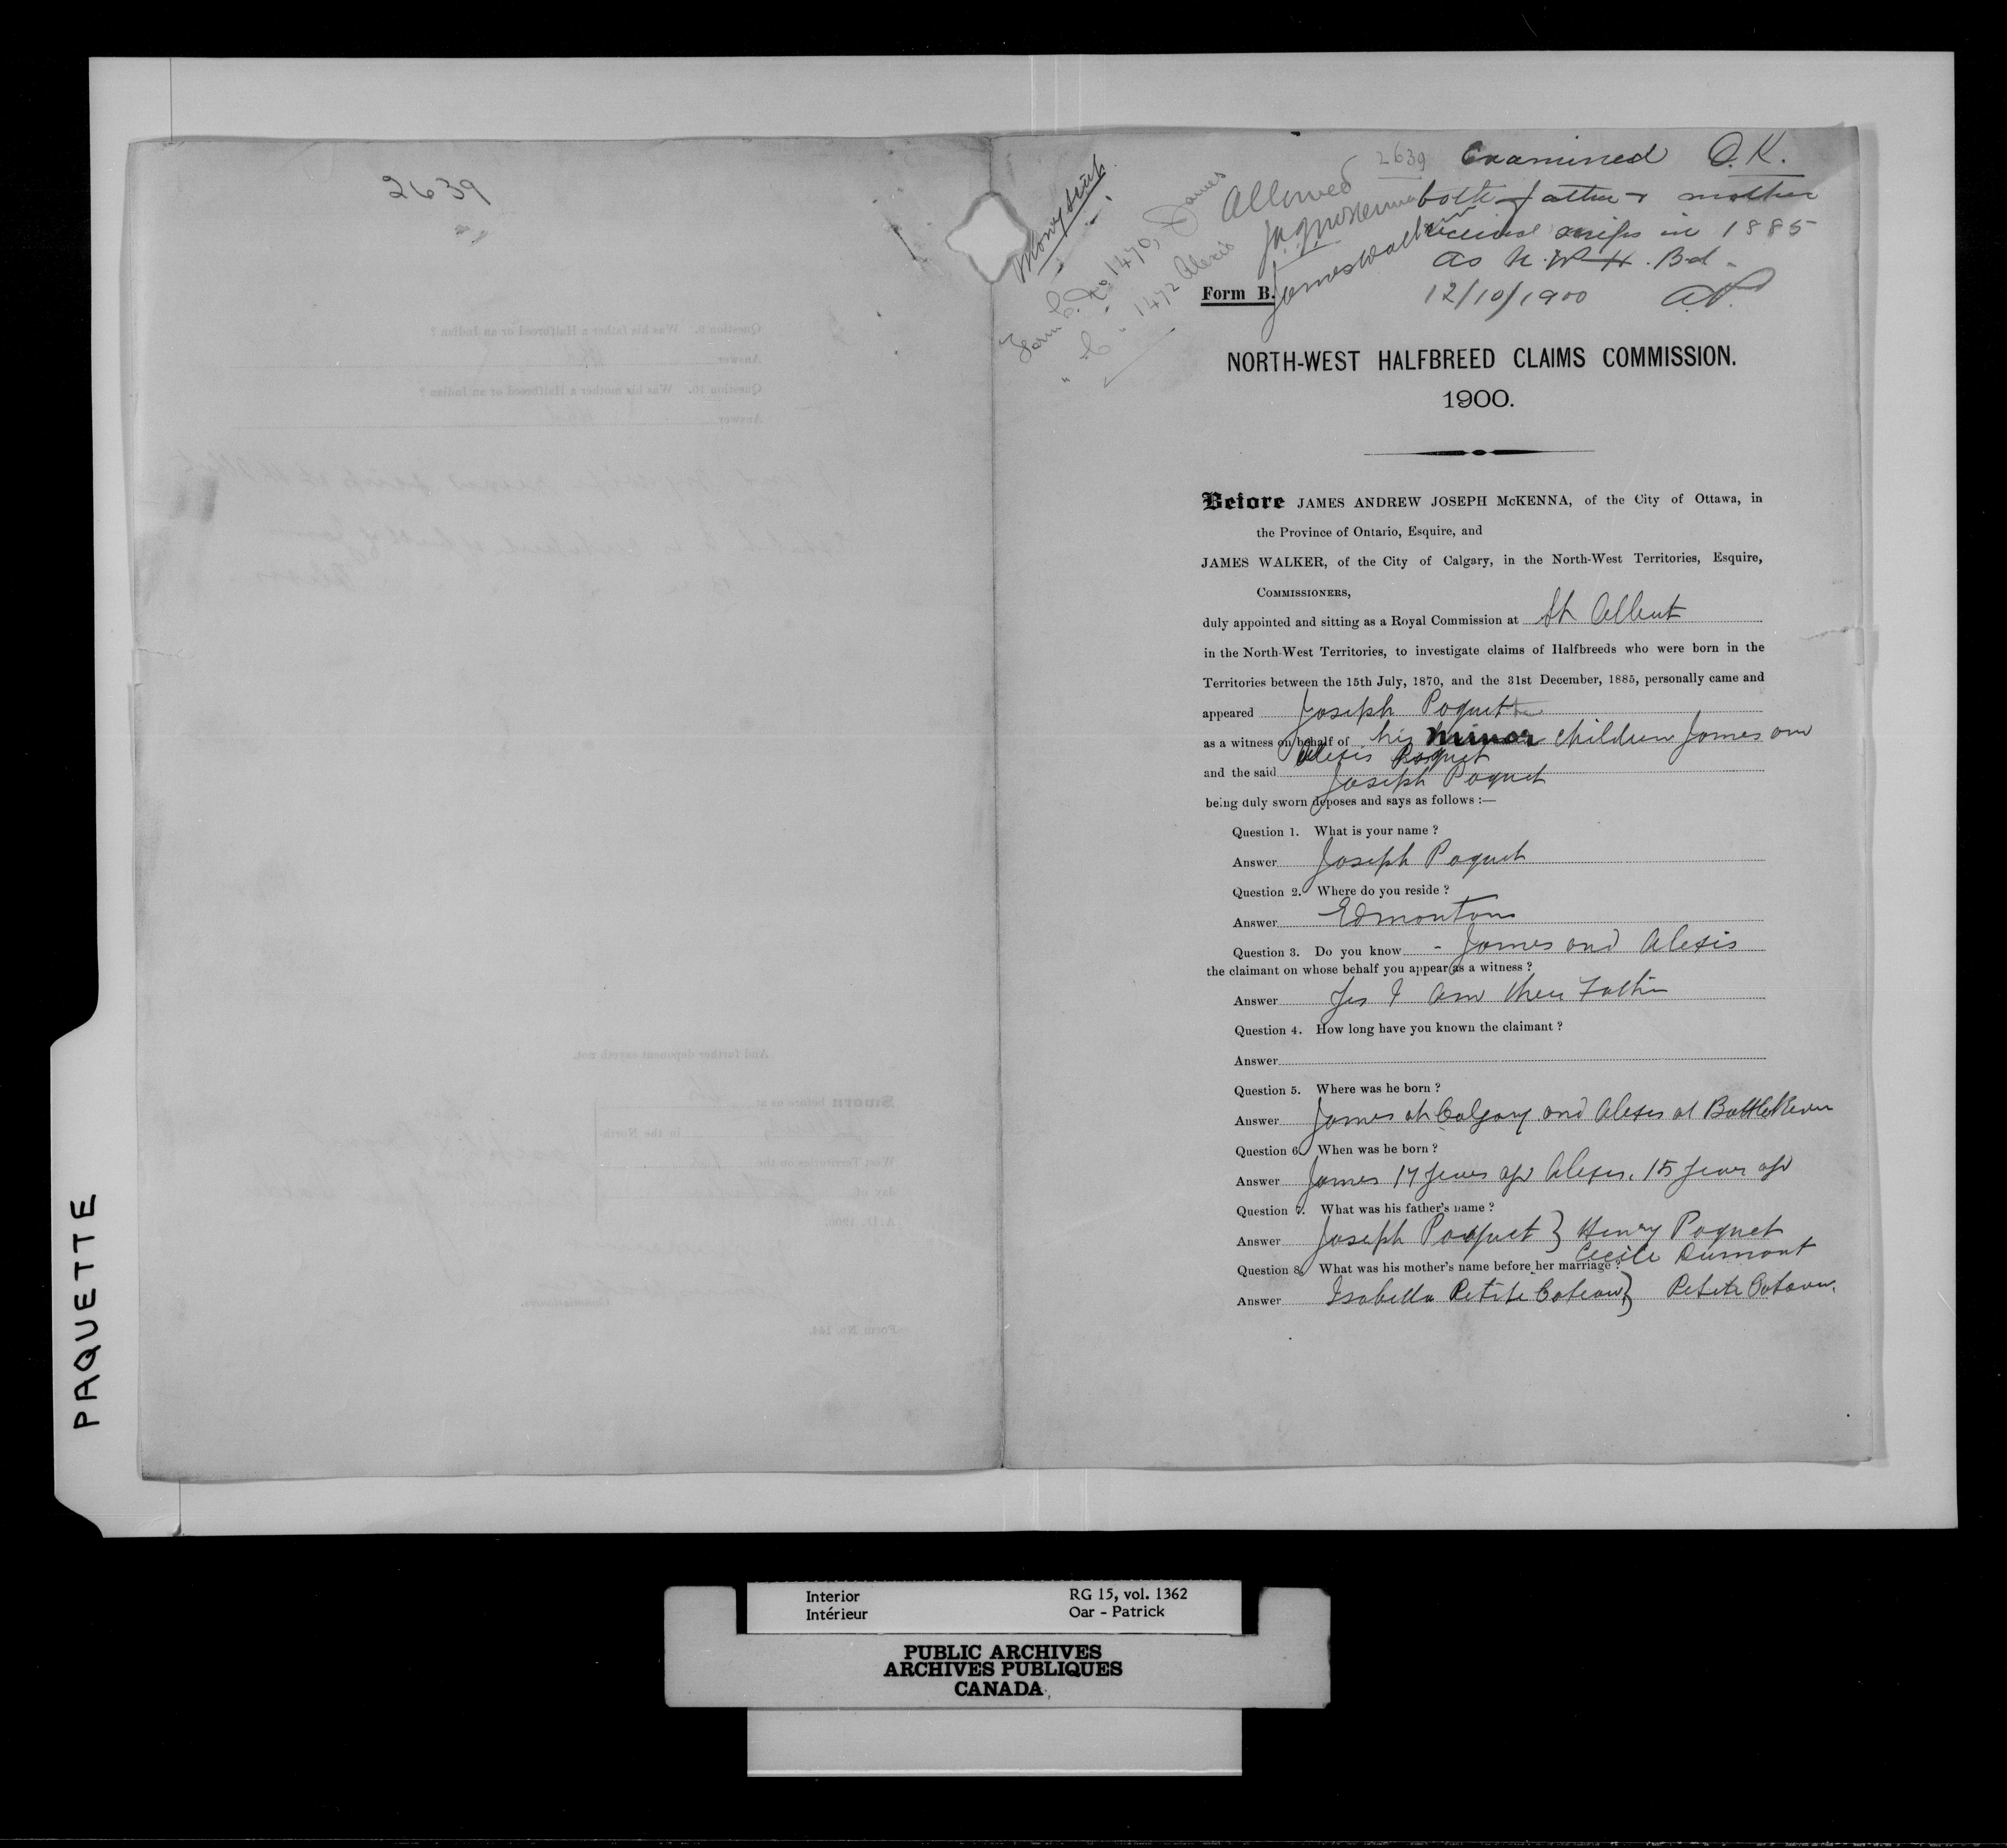 2639
PAQUETTE
Money Scrip
Form C. No 1470, James
" C " 1472 Alexis
Allowed
2639
JAJ McKenna
James Walker
Examined O.K.
both father & mother
received scrips in 1885
as N.W.H.Bd.
12/10/1900 A.P.
Form B.
NORTH-WEST HALFBREED CLAIMS COMMISSION.
1900.
Before JAMES ANDREW JOSEPH McKENNA, of the City of Ottawa, in
the Province of Ontario, Esquire, and
JAMES WALKER, of the City of Calgary, in the North-West Territories, Esquire,
COMMISSIONERS,
duly appointed and sitting as a Royal Commission at St Albert
in the North-West Territories, to investigate claims of Halfbreeds who were born in the
Territories between the 15th July, 1870, and the 31st December, 1885, personally came and
appeared Joseph Paquette
as a witness on behalf of his minor children James and
Alexis Paquet
and the said Joseph Paquet
being duly sworn deposes and says as follows :—
Question 1. What is your name ?
Answer Joseph Paquet
Question 2. Where do you reside ?
Answer Edmonton
Question 3. Do you know - James and Alexis
the claimant on whose behalf you appear as a witness ?
Answer Yes I am their Father
Question 4. How long have you known the claimant ?
Answer
Question 5. Where was he born ?
Answer James at Calgary and Alexis at Battle River
Question 6. When was he born ?
Answer James 17 years ago Alexis. 15 years ago
Question 7. What was his father's name ?
Answer Joseph Paquet } Henry Paquet
Cecile Dumont
Question 8. What was his mother's name before her marriage ?
Answer Isabella Petite Coteau } Petite Coteau.
And further deponent sayeth not.
Form No. 144.
Interior RG 15, vol. 1362
Intérieur Oar - Patrick
PUBLIC ARCHIVES
ARCHIVES PUBLIQUES
CANADA